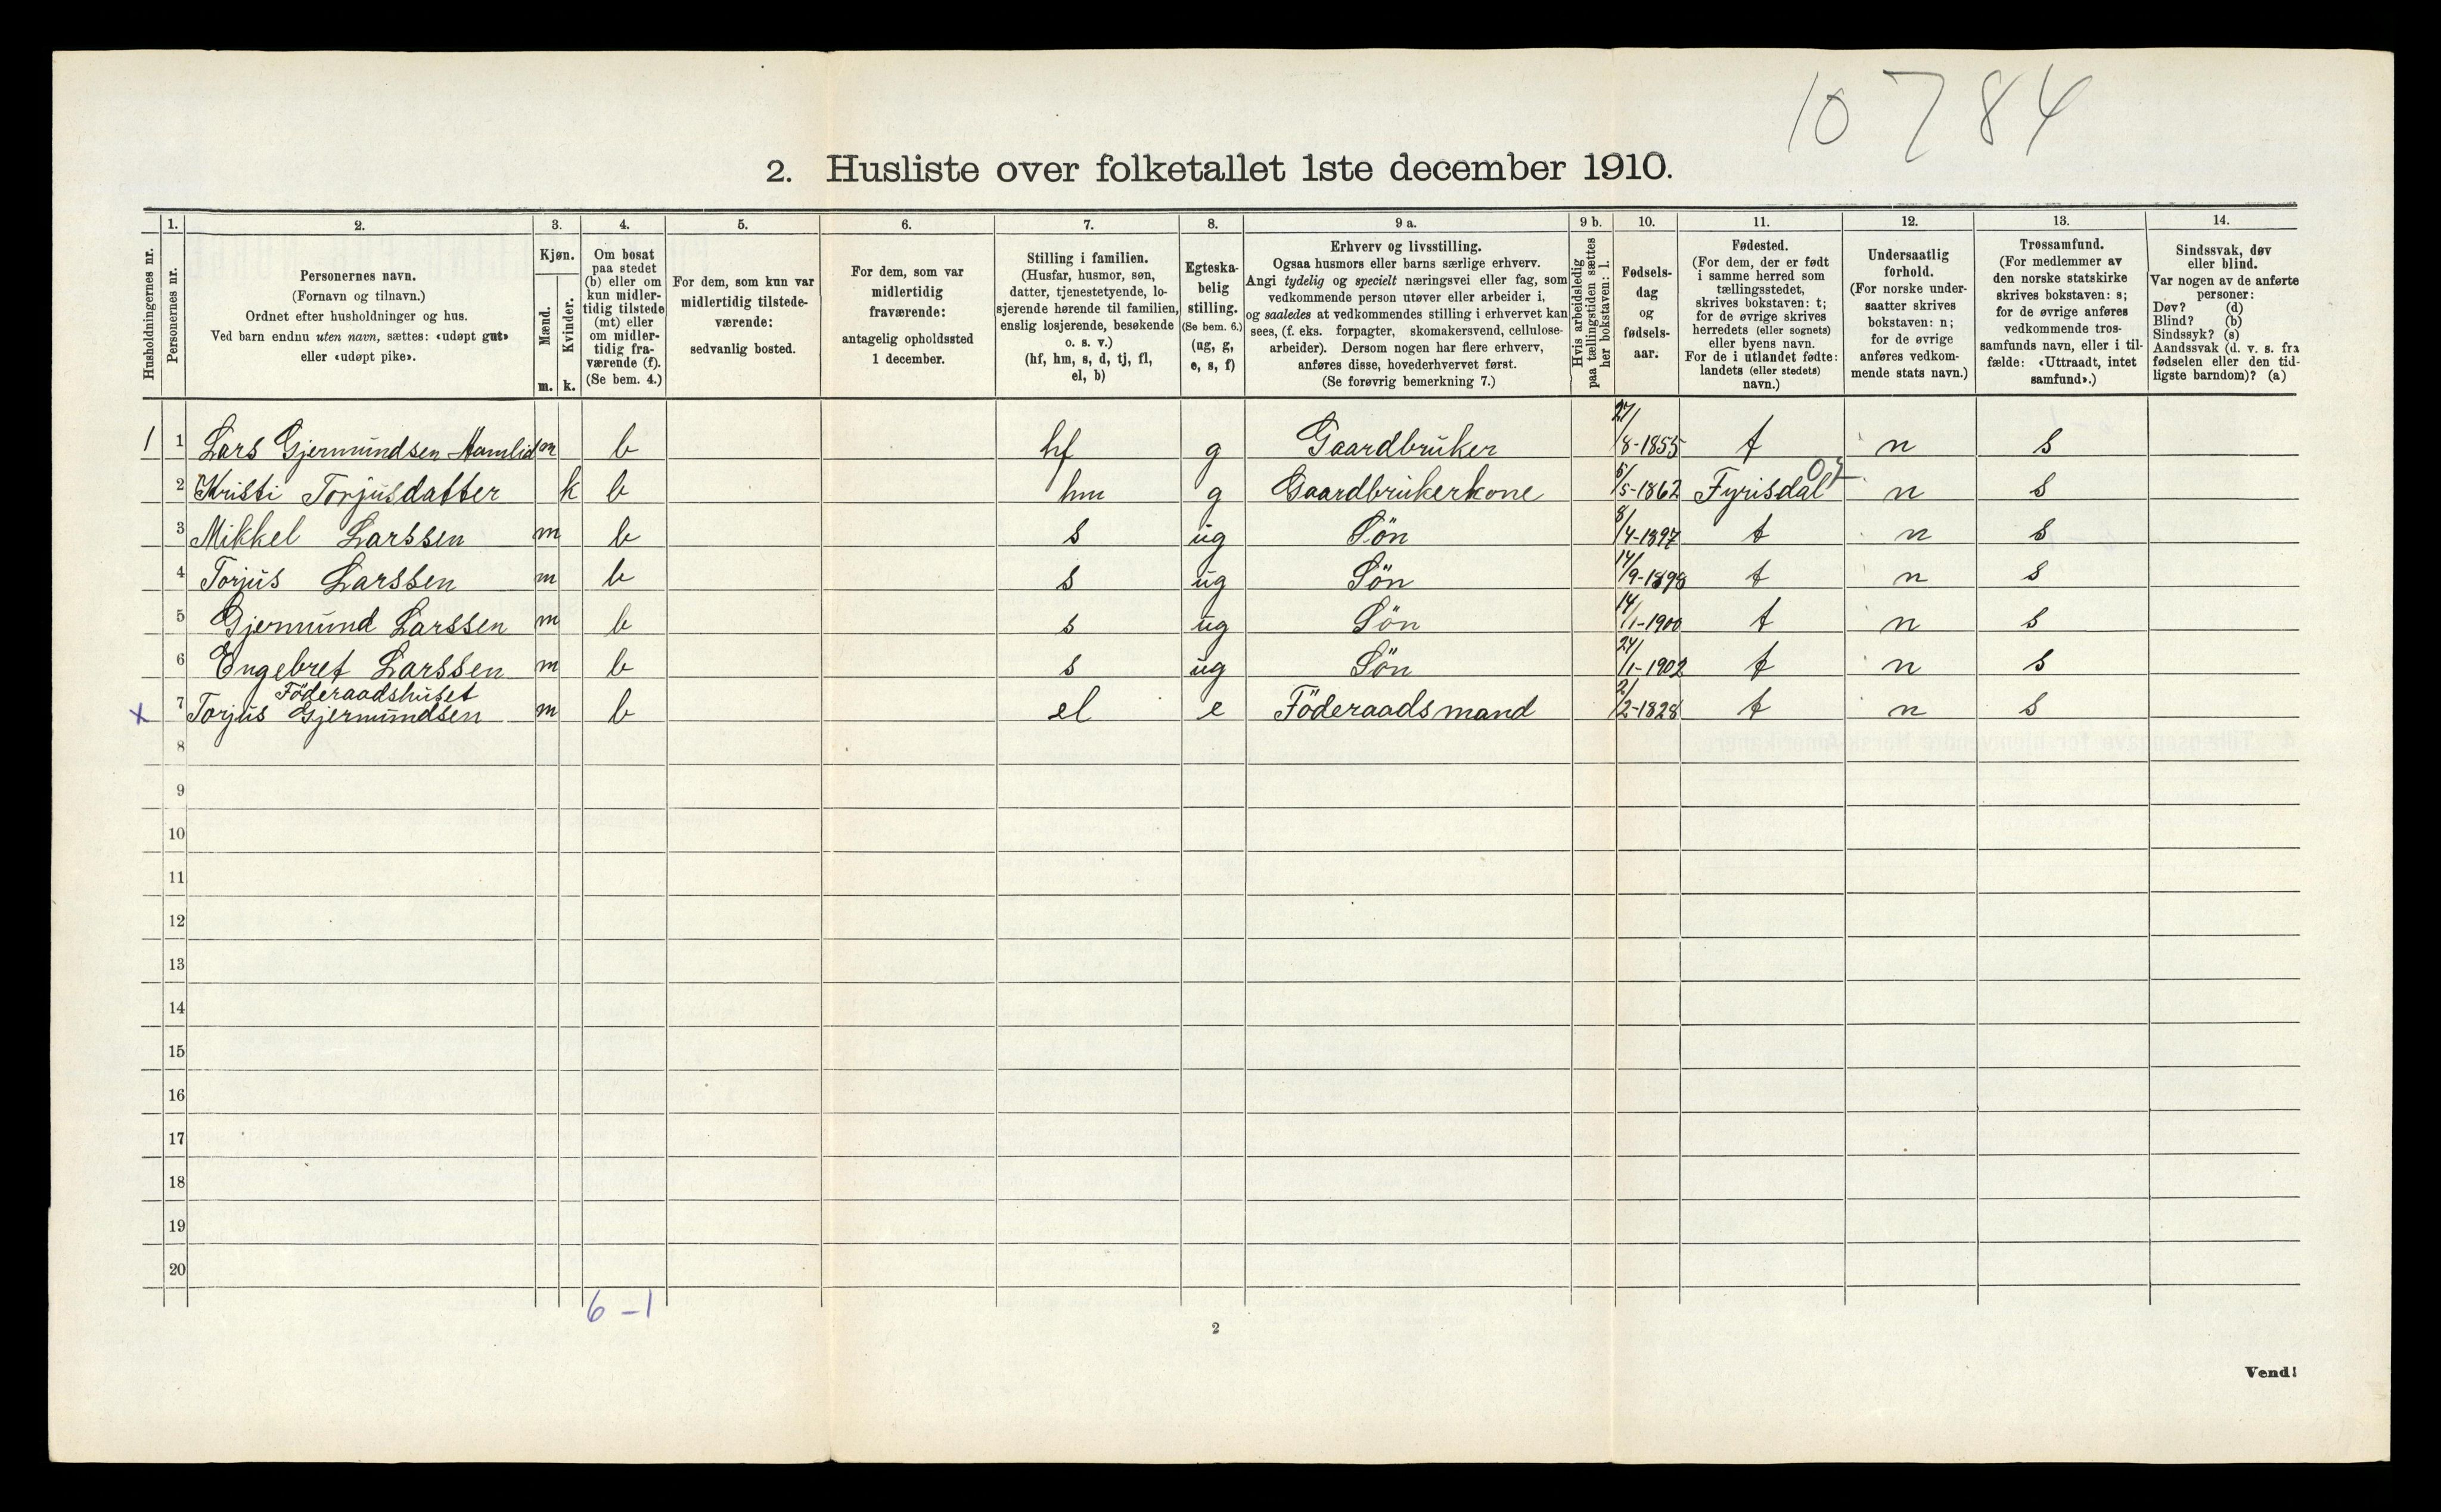 10784
2. Husliste over folketallet 1ste december 1910.
Husholdningernes nr.
1.
Personernes nr.
2.
Personernes navn.
(Fornavn og tilnavn.)
Ordnet efter husholdninger og hus.
Ved barn endnu uten navn, sættes: «udøpt gut»
eller «udøpt pike».
3.
Kjøn.
Mænd.
Kvinder.
m. k.
4.
Om bosat
paa stedet
(b) eller om
kun midler-
tidig tilstede
(mt) eller
om midler-
tidig fra-
værende (f).
(Se bem. 4.)
5.
For dem, som kun var
midlertidig tilstede-
værende:
sedvanlig bosted.
6.
For dem, som var
midlertidig
fraværende:
antagelig opholdssted
1 december.
7.
Stilling i familien.
(Husfar, husmor, søn,
datter, tjenestetyende, lo-
sjerende hørende til familien,
enslig losjerende, besøkende
o. s. v.)
(hf, hm, s, d, tj, fl,
el, b)
8.
Egteska-
belig
stilling.
(Se bem. 6.)
(ug, g,
e, s, f)
9 a.
Erhverv og livsstilling.
Ogsaa husmors eller barns særlige erhverv.
Angi tydelig og specielt næringsvei eller fag, som
vedkommende person utøver eller arbeider i,
og saaledes at vedkommendes stilling i erhvervet kan
sees, (f. eks. forpagter, skomakersvend, cellulose-
arbeider). Dersom nogen har flere erhverv,
anføres disse, hovederhvervet først.
(Se forøvrig bemerkning 7.)
9 b.
Hvis arbeidsledig
paa tællingstiden sættes
her bokstaven: l.
10.
Fødsels-
dag
og
fødsels-
aar.
11.
Fødested.
(For dem, der er født
i samme herred som
tællingsstedet,
skrives bokstaven: t;
for de øvrige skrives
herredets (eller sognets)
eller byens navn.
For de i utlandet fødte:
landets (eller stedets)
navn.)
12.
Undersaatlig
forhold.
(For norske under-
saatter skrives
bokstaven: n;
for de øvrige
anføres vedkom-
mende stats navn.)
13.
Trossamfund.
(For medlemmer av
den norske statskirke
skrives bokstaven: s;
for de øvrige anføres
vedkommende tros-
samfunds navn, eller i til-
fælde: «Uttraadt, intet
samfund».)
14.
Sindssvak, døv
eller blind.
Var nogen av de anførte
personer:
Døv? (d)
Blind? (b)
Sindssyk? (s)
Aandssvak (d. v. s. fra
fødselen eller den tid-
ligste barndom)? (a)
1 1 Lars Gjermundsen Homlid m b hf g Gaardbruker 27/8-1855 t n s
2 Kristi Torjusdatter k b hm g Gaardbrukerkone 5/5-1862 Fyrisdal n s
3 Mikkel Larssen m b s ug Sön 8/4-1897 t n s
4 Torjus Larssen m b s ug Sön 14/9-1898 t n s
5 Gjermund Larssen m b s ug Sön 14/1-1900 t n s
6 Engebret Larssen m b s ug Sön 24/1-1902 t n s
Föderaadshuset
x 7 Torjus Gjermundsen m b el e Föderaadsmand 2/2-1828 t n s
8
9
10
11
12
13
14
15
16
17
18
19
20
6 - 1
2
Vend!